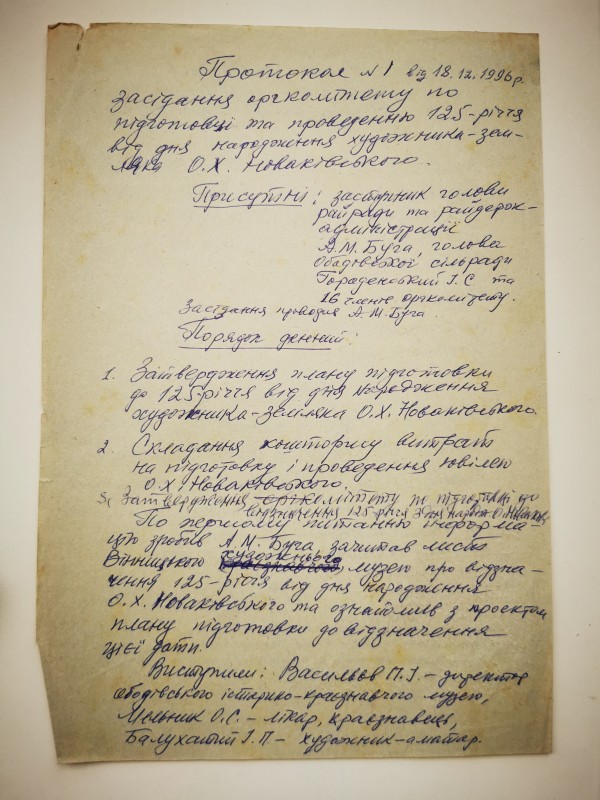 Протокол N1 від 18.12.1996р.
засідання оргкомітету по
підготовці та проведенню 125-річчя
від дня народження художника-зем-
ляка О.Х. Новаківського.
Присутні: заступник голови
райради та райдерж-
адміністрації
А.М. Буга, голова
Ободівської сільради
І.С та
16 членів оргкомітету.
Засідання проводив А.М. Буга.
Порядок денний:
1. Затвердження плану підготовки
до 125-річчя від дня народження
художника-земляка О.Х. Новаківського.
2. Складання кошторису витрат
на підготовку і проведення ювілею
О.Х. Новаківського.
Затвердження оргкомітету по підготовці до
відзначення 125-річчя з дня народж. О.Новаків.
По першому питанню інформа-
цію зробив А.М. Буга, зачитав лист
Вінницького художнього музею про відзна-
чення 125-річчя від дня народження
О.Х. Новаківського та ознайомив з проектом
плану підготовки до відзначення
цієї дати.
Виступили: Васильвов П.І. – директор
ободівського історико-краєзнавчого музею,
Мельник О.С. – лікар, краєзнавець,
І.П – художник-аматор.